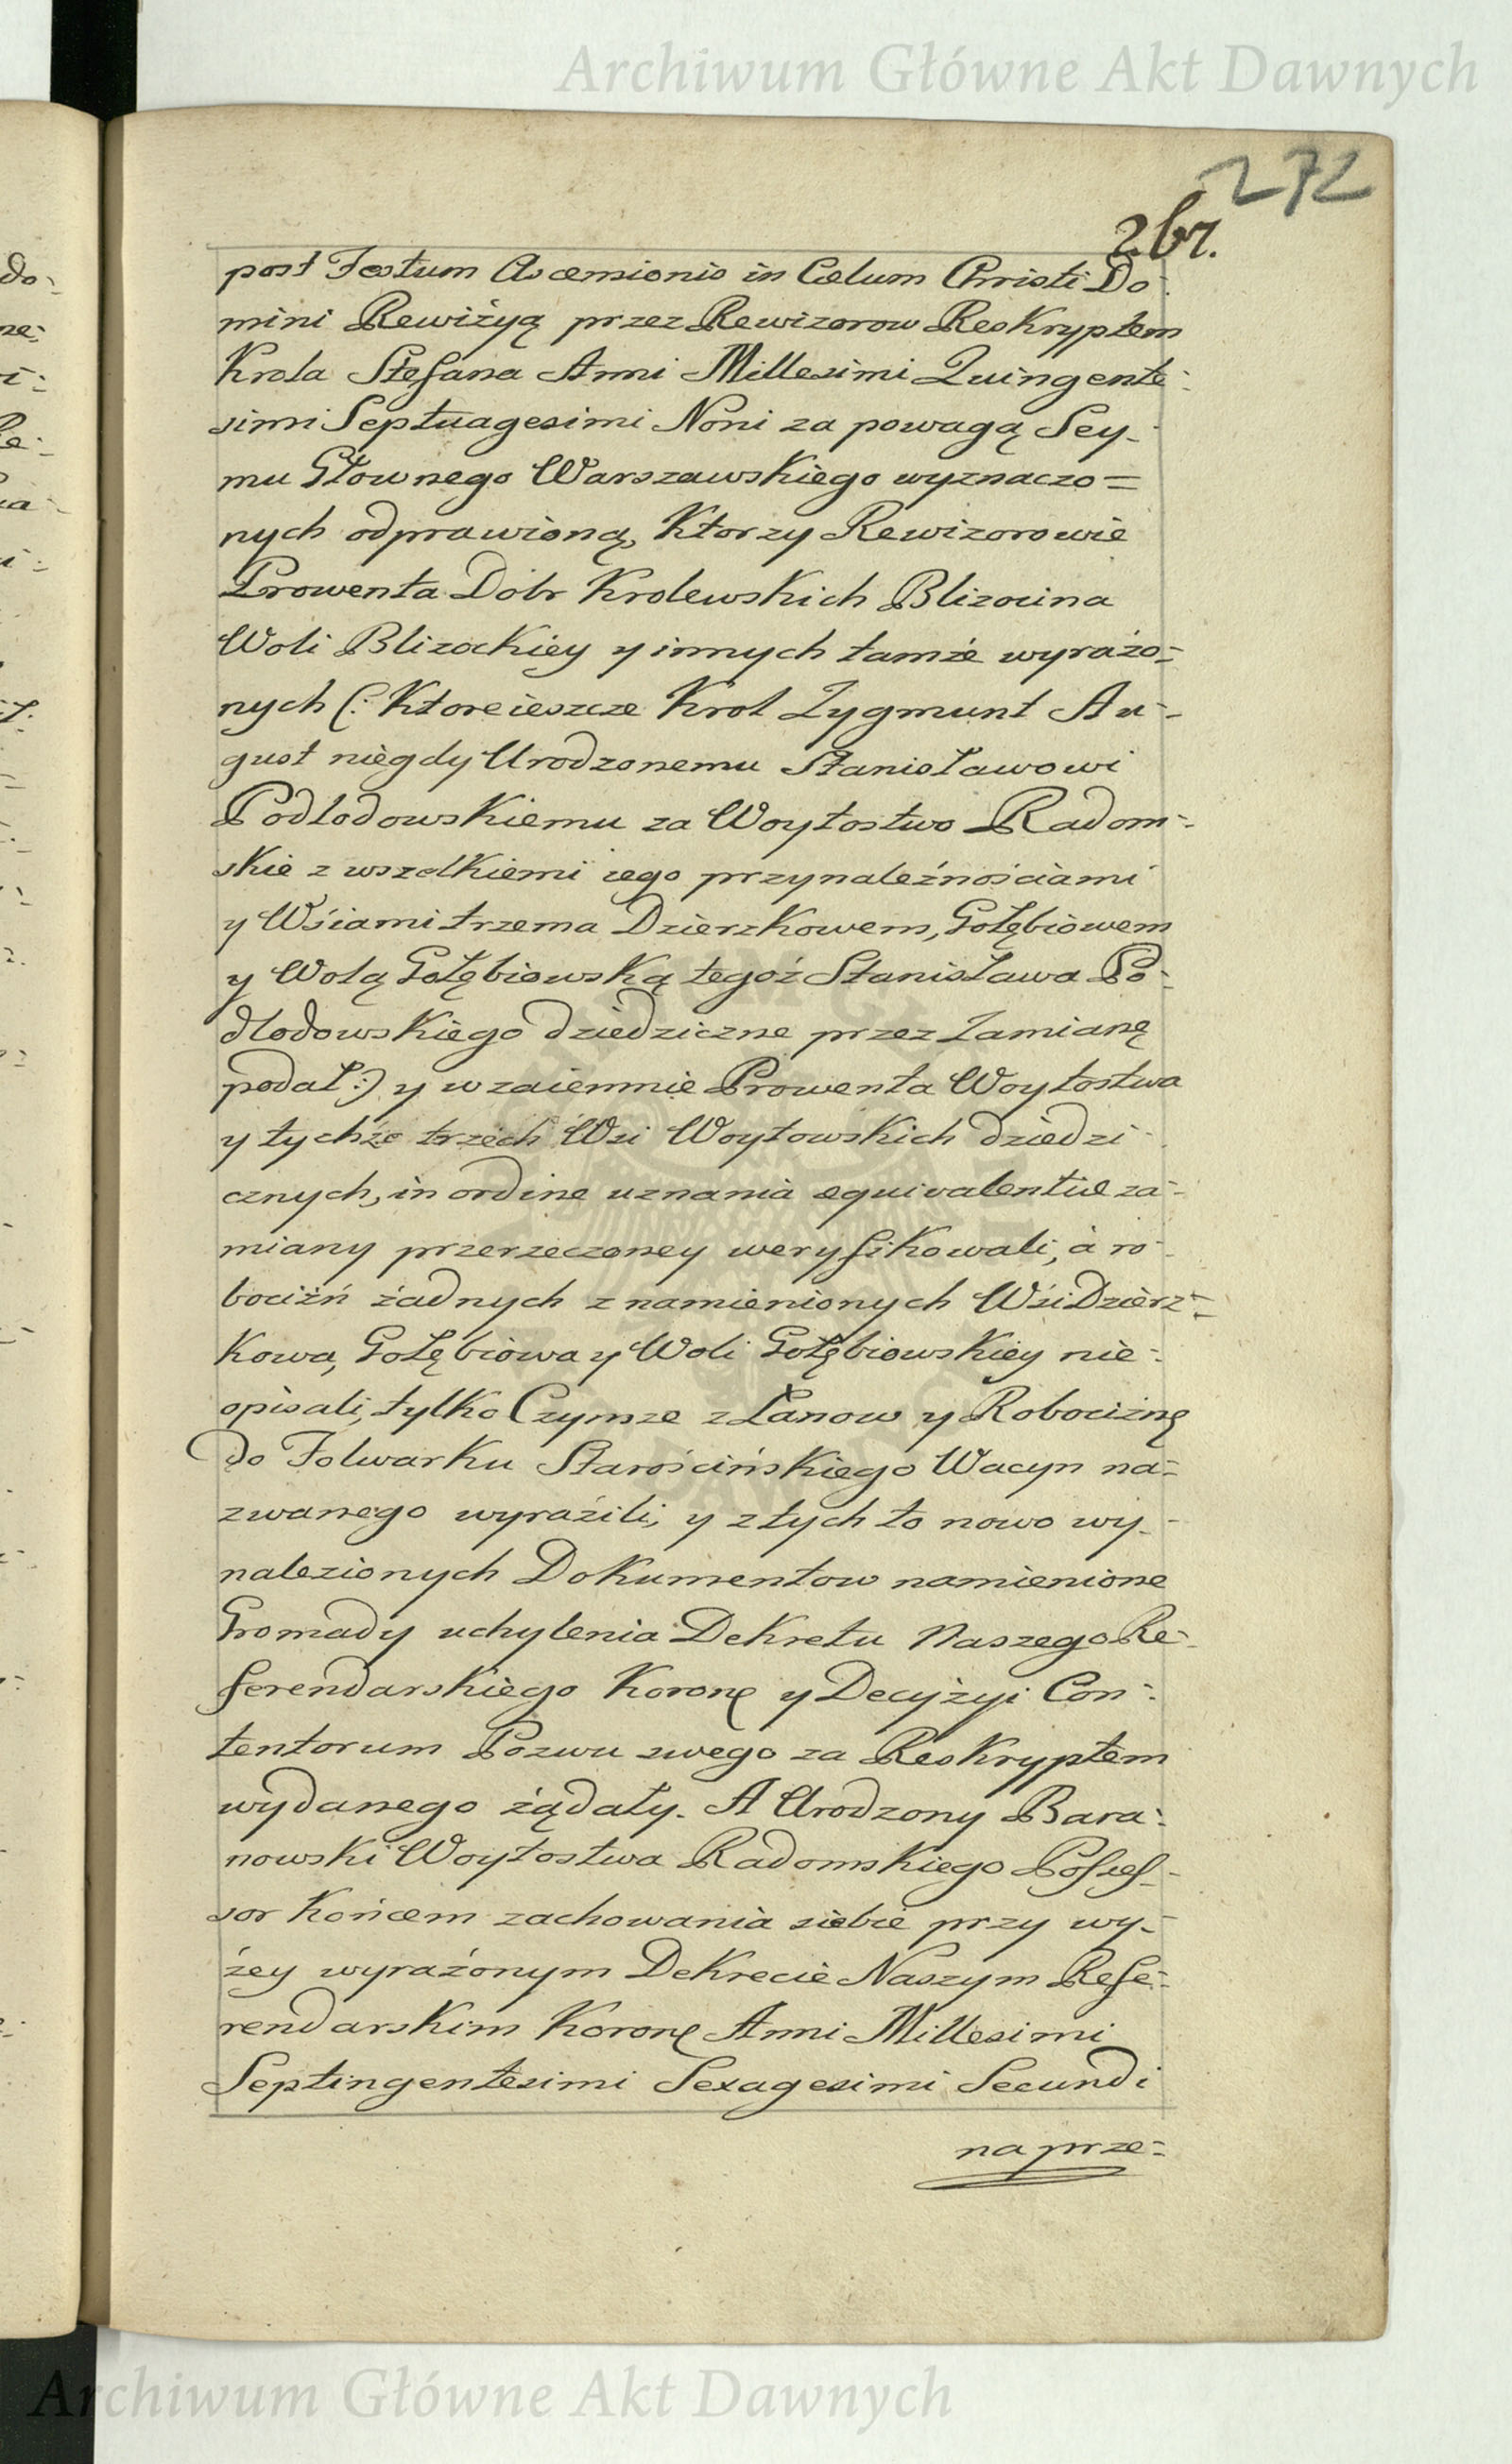 Archiwum Główne Akt Dawnych
272
267.
post Festum Ascensionis in Cœlum Christi Do-
mini Rewiżyą przez Rewizorow Reskryptem
Krola Stefana Anni Millesimi Quingente-
simi Septuagesimi Noni za powagą Sey-
mu Głownego Warszawskiego wyznaczo=
nych odprawioną, Ktorzy Rewizorowie
Prowenta Dobr Krolewskich Blizocina
Woli Blizockiey y innych tamże wyrażo=
nych (: Ktore ieszcze Krol Zygmunt Au-
gust niegdy Urodzonemu Stanisławowi
Podlodowskiemu za Woytostwo Radom-
skie z wszelkiemi iego przynależnościami
y Wśiami trzema Dzierzkowem, Gołębiowem
y Wolą Gołębiowską tegoż Stanisława Po-
dlodowskiego dziedziczne przez Zamianę
podał :) y wzaiemnie Prowenta Woytostwa
y tychże trzech Wsi Woytowskich dziedzi-
cznych, in ordine uznania equivalentiæ za-
miany przerzeczoney weryfikowali, à ro-
bociżń żadnych z namienionych Wśi Dzierz-
kowa, Gołębiowa y Woli Gołębiowskiey nie-
opisali, tylko Czynsze z Łanow y Robociznę
do Folwarku Starościńskiego Wacyn na=
zwanego wyraźili, y z tych to nowo wy-
nalezionych Dokumentow namienione
Gromady uchylenia Dekretu Naszego Re-
ferendarskiego Koronę y Decyżyi Con-
tentorum Pozwu swego za Reskryptem
wydanego żądały. A Urodzony Bara-
nowski Woytostwa Radomskiego Possess-
sor końcem zachowania siebie przy wy-
żey wyrażonym Dekrecie Naszym Refe-
rendarskim Koronę Anni Millesimi
Septingentesimi Sexagesimi Secundi
na prze-
Archiwum Główne Akt Dawnych